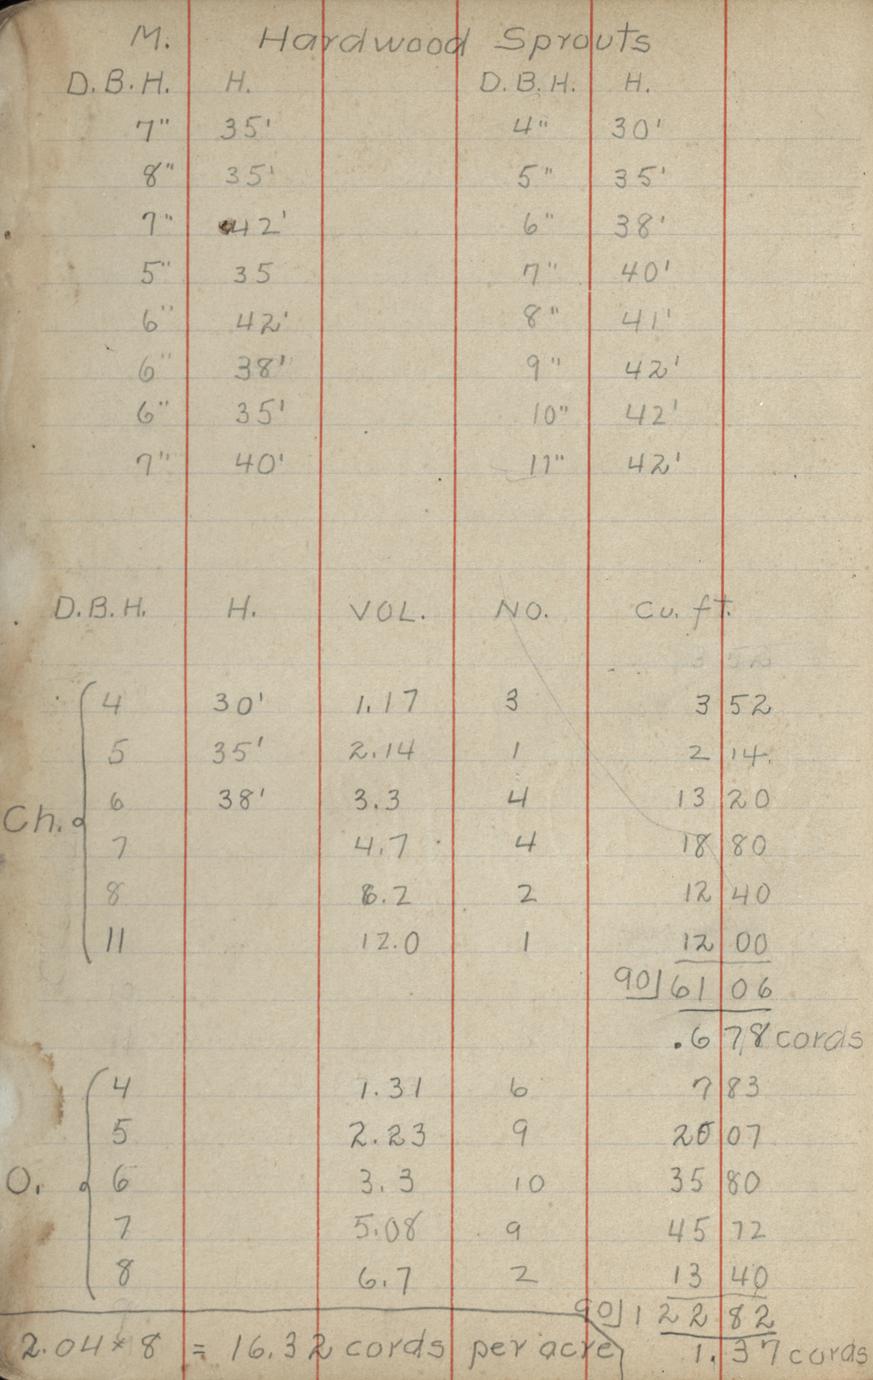 M. Hardwood Sprouts
D.B.H. H. D.B.H. H.
7" 35' 4" 30'
8" 35' 5" 35'
7" 42' 6" 38'
5" 35 7" 40'
6" 42' 8" 41'
6" 38' 9" 42'
6" 35' 10" 42'
7" 40' 11" 42'
D.B.H. H. VOL. NO. Cu. ft.
4 30' 1.17 3 3 52
5 35' 2.14 1 2 14
Ch. 6 38' 3.3 4 13 20
7 4.7 4 18 80
8 6.2 2 12 40
11 12.0 1 12 00
90 61 06
.678 cords
4 1.31 6 7 83
5 2.23 9 20 07
O. 6 3.3 10 35 80
7 5.08 9 45 72
8 6.7 2 13 40
90 122 82
2.04 * 8 = 16.32 cords per acre 1.37 cords